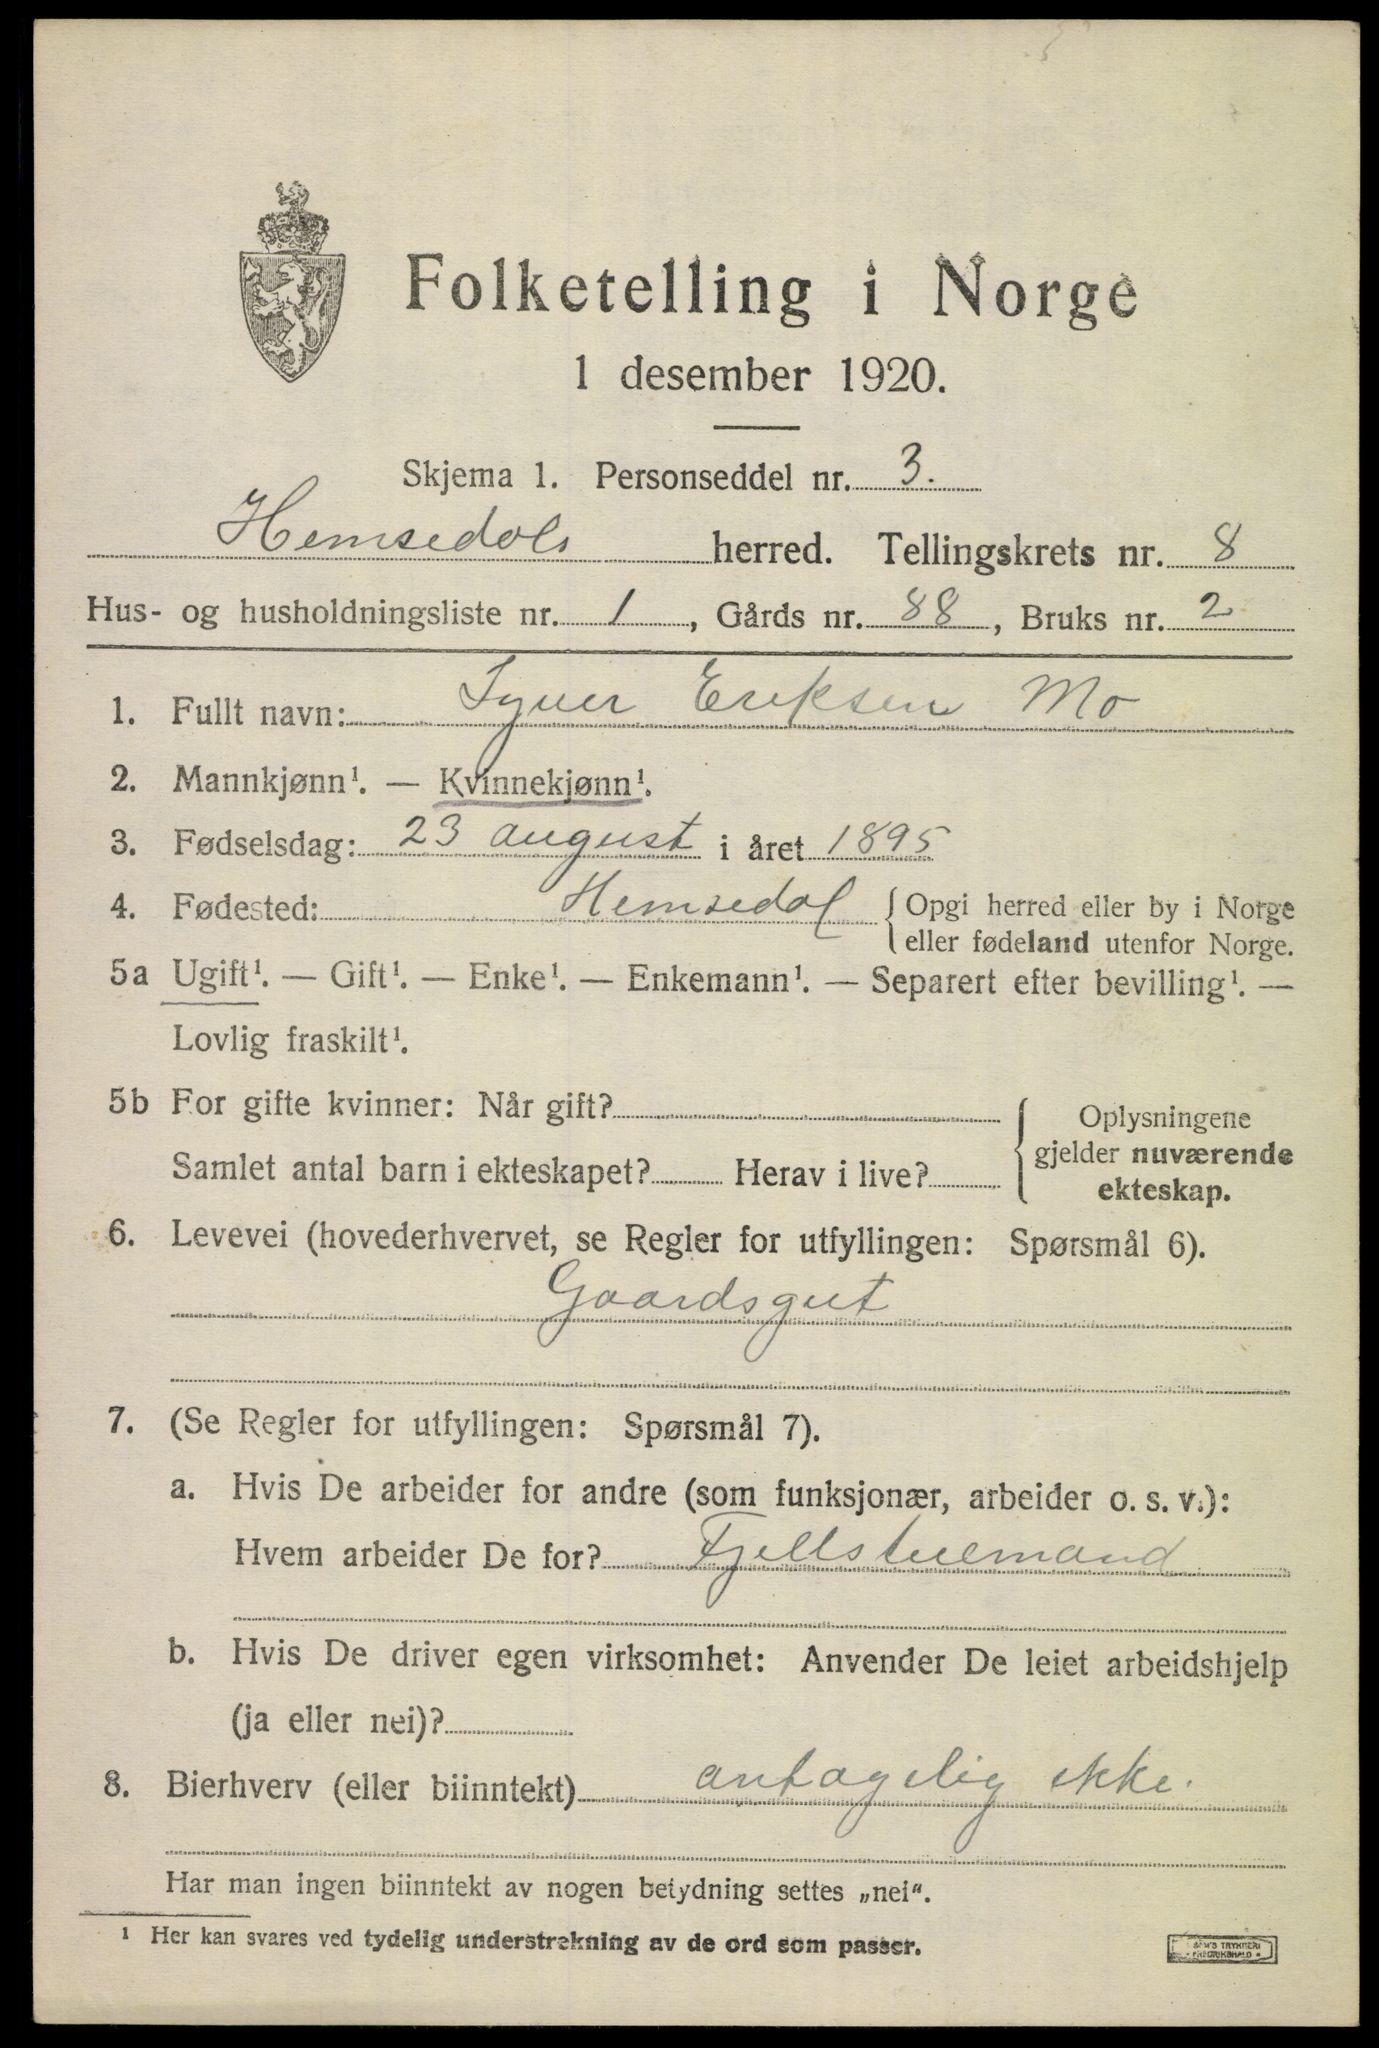 Folketelling i Norge
1 desember 1920.
Skjema 1. Personseddel nr. 3.
Hemsedals herred. Tellingskrets nr. 8
Hus- og husholdningsliste nr. 1, Gårds nr. 88, Bruks nr. 2
1. Fullt navn: Syver Eriksen Mo
2. Mannkjønn¹. — Kvinnekjønn¹.
3. Fødselsdag: 23 august i året 1895
4. Fødested: Hemsedal { Opgi herred eller by i Norge
eller fødeland utenfor Norge.
5a Ugift¹. — Gift¹. — Enke¹. — Enkemann¹. — Separert efter bevilling¹. —
Lovlig fraskilt¹.
5b For gifte kvinner: Når gift?
Samlet antal barn i ekteskapet? Herav i live?
{ Oplysningene
gjelder nuværende
ekteskap.
6. Levevei (hovederhvervet, se Regler for utfyllingen: Spørsmål 6).
Gaardsgut
7. (Se Regler for utfyllingen: Spørsmål 7).
a. Hvis De arbeider for andre (som funksjonær, arbeider o. s. v.):
Hvem arbeider De for? Fjellstuemand
b. Hvis De driver egen virksomhet: Anvender De leiet arbeidshjelp
(ja eller nei)?
8. Bierhverv (eller biinntekt) antagelig ikke.
Har man ingen biinntekt av nogen betydning settes „nei“.
¹ Her kan svares ved tydelig understrekning av de ord som passer.
TRYKKERI
FREDRIKSHALD